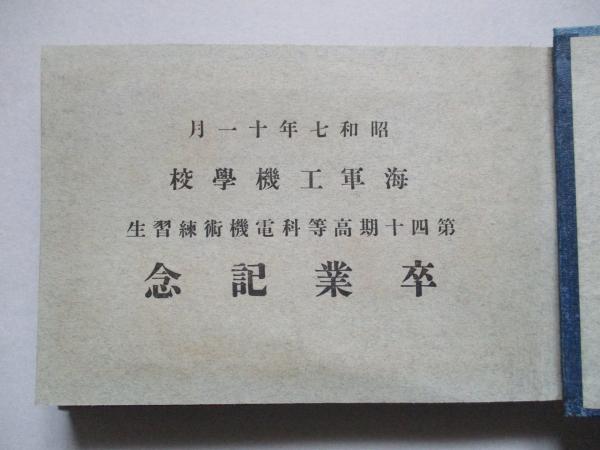 昭和七年十一月
海軍工機學校
第四十期高等科電機術練習生
卒業記念